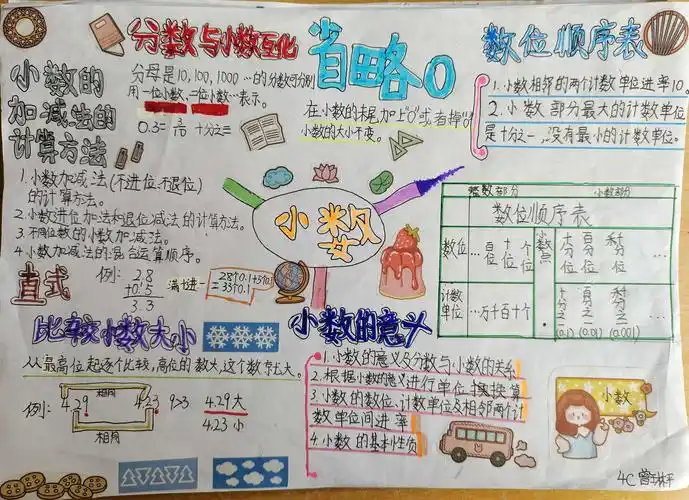 分数与小数互化
分母是10,100,1000…的分数可分别
用一位小数、二位小数…表示。
0.3= 3/10 十分之三
省略0
在小数的末尾加上"0"或者掉"0"
小数的大小不变。
数位顺序表
1.小数相邻的两个计数单位进率10。
2.小数部分最大的计数单位
是十分之一,没有最小的计数单位。
小数的
加减法的
计算方法
1.小数加减法(不进位.不退位)
的计算方法。
2.小数进位加法和退位减法的计算方法。
3.不同位数的小数加减法。
4.小数加减法的混合运算顺序。
小数
整数部分 小数部分
数位顺序表
数位 … 百位 十位 个位 小数点 十分位 百分位 千分位 …
计数单位 … 万 千 百 十 个 · 十分之一 百分之一 千分之一 …
(0.1) (0.01) (0.001)
直式
例:
2.8
+0.5
3.3
满十进一
28个0.1+5个0.1
=33个0.1
比较小数大小
从最高位起逐个比较,高位的数大,这个数就大。
例:
相同
4.29 4.23 9>3
相同
4.29大
4.23小
小数的意义
1.小数的意义及分数与小数的关系
2.根据小数的意义进行单位换算
3.小数的数位、计数单位及相邻两个计
数单位间进率
4.小数的基本性质
小数
4C